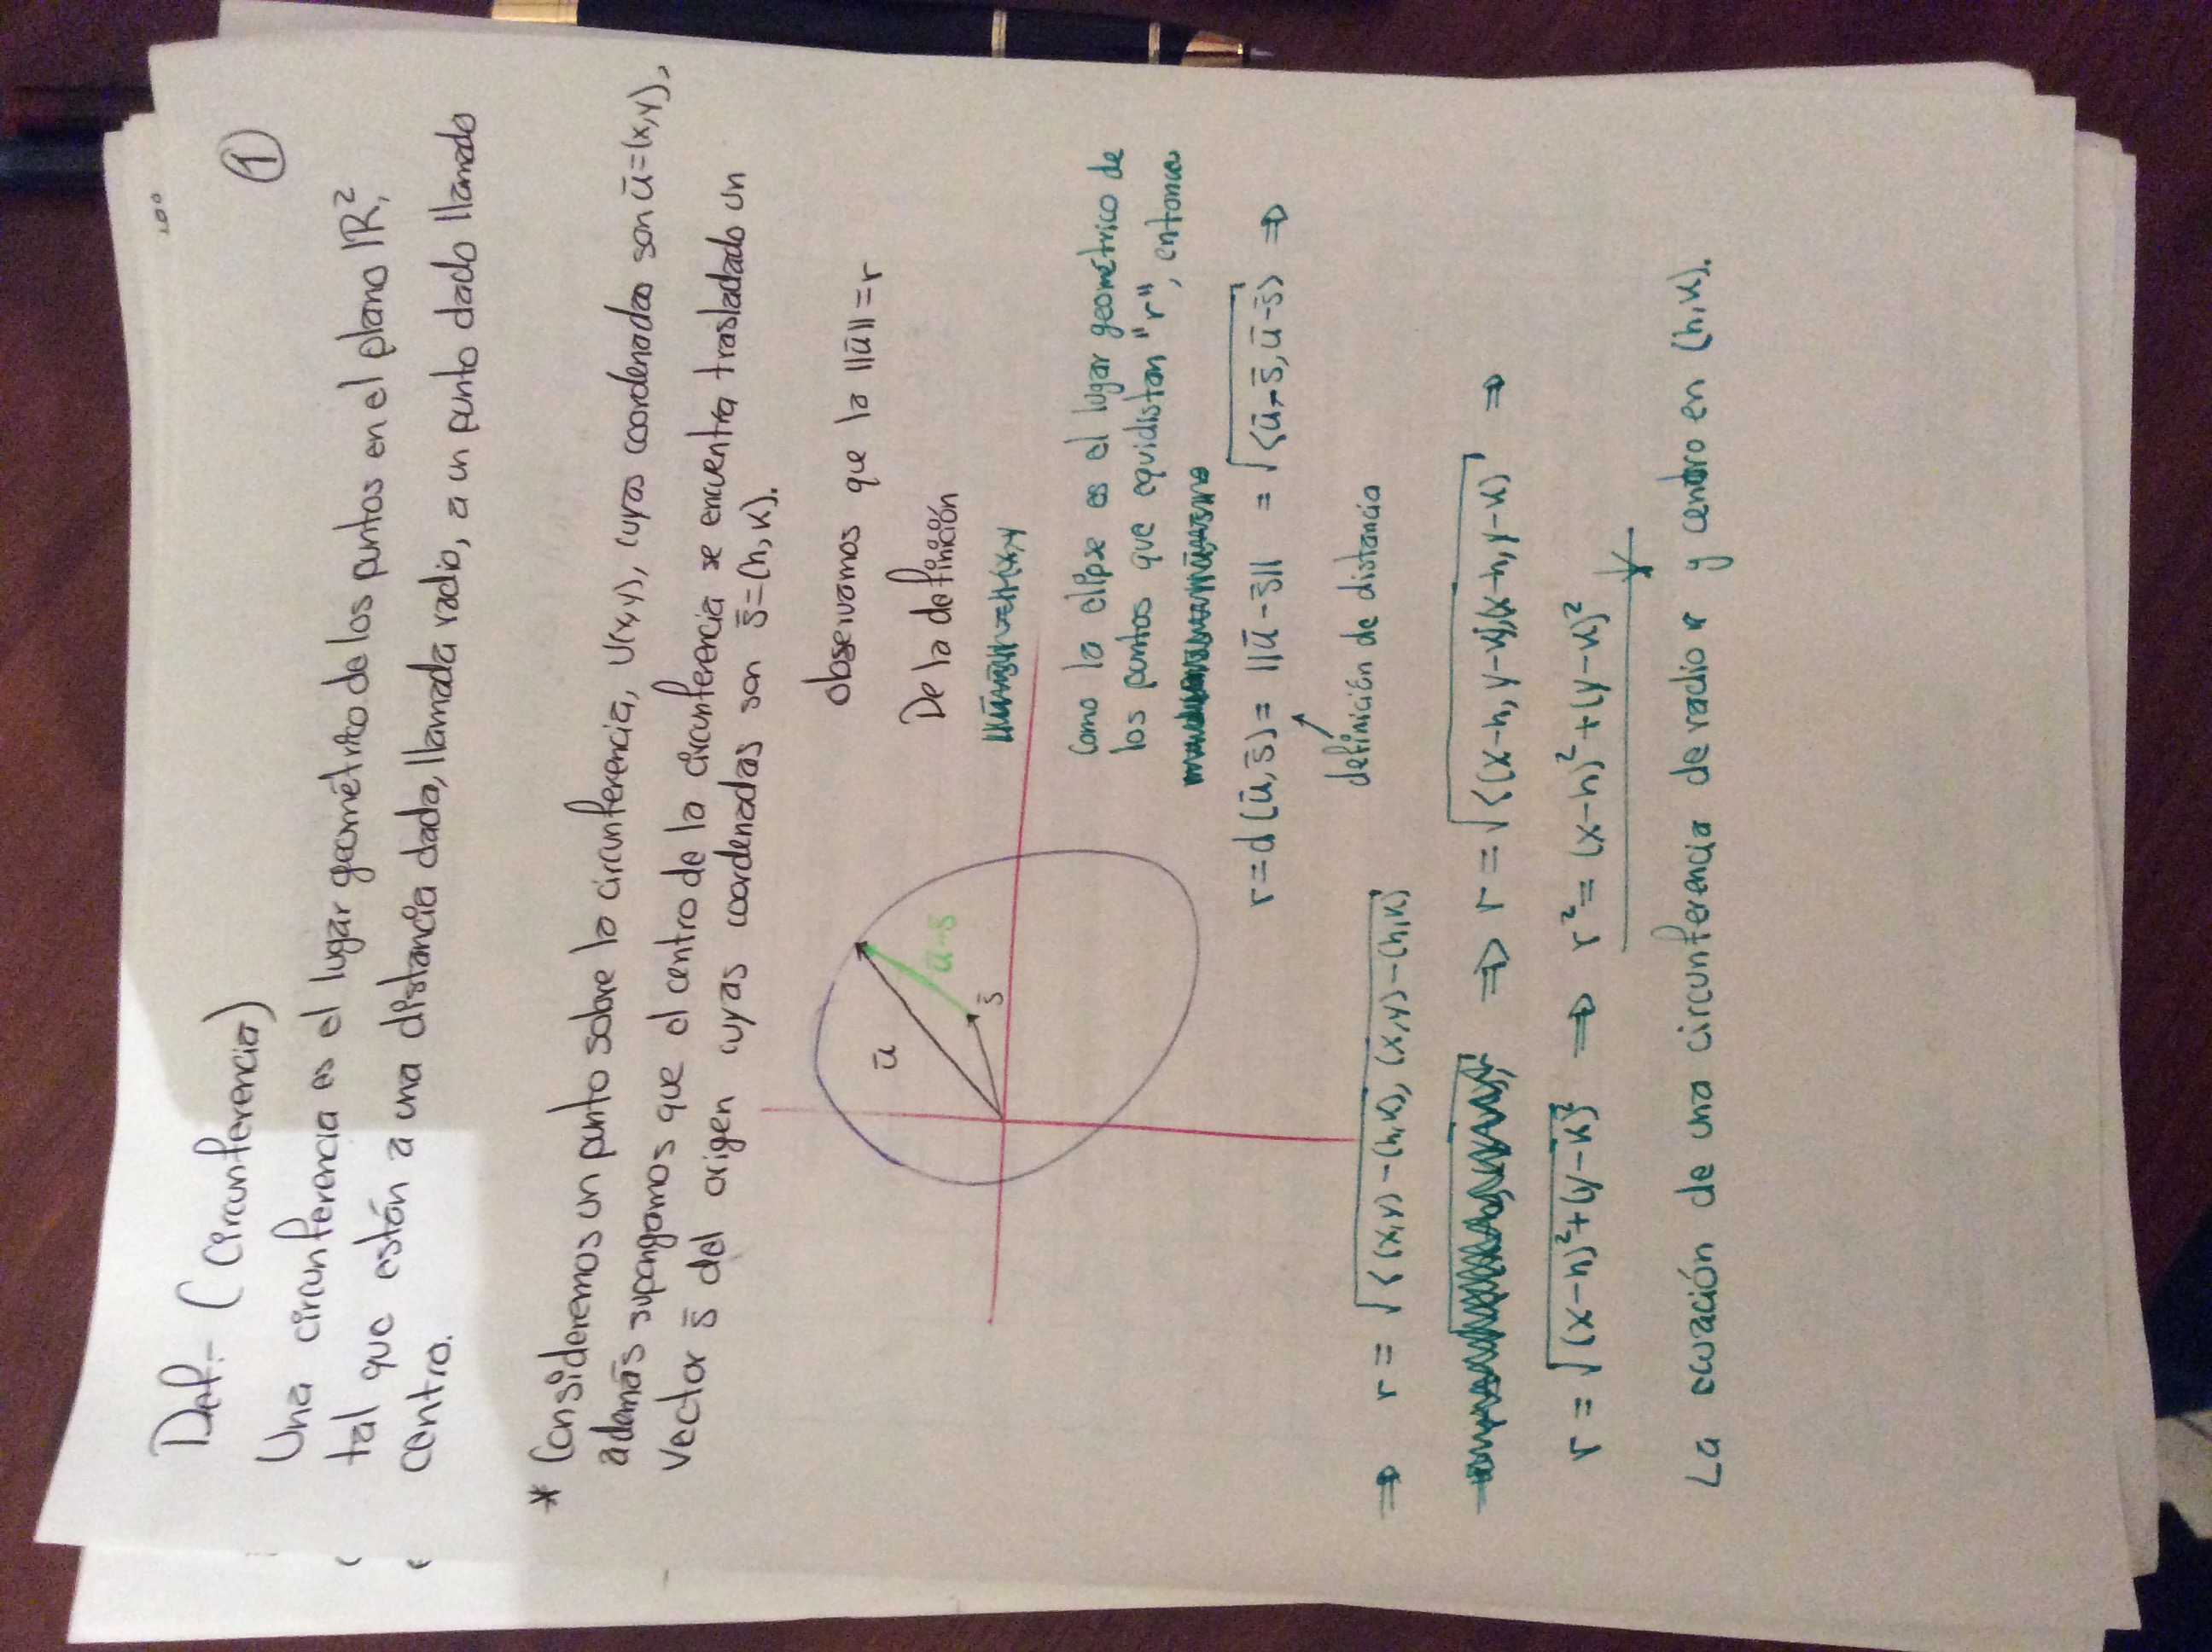 ①
Def.- (Circunferencia)
Una circunferencia es el lugar geométrico de los puntos en el plano IR²,
tal que están a una distancia dada, llamada radio, a un punto dado llamado
centro.
* Consideremos un punto sobre la circunferencia, U(x,y), cuyas coordenadas son ū=(x,y),
además supongamos que el centro de la circunferencia se encuentra trasladado un
vector s̄ del origen cuyas coordenadas son s̄=(h,k).
observamos que la ||ū||=r
De la definición
ū
ū-s
s̄
Como la elipse es el lugar geométrico de
los puntos que equidistan "r", entonces
r=d(ū,s̄)= ||ū-s̄|| = √⟨ū-s̄,ū-s̄⟩ ⇒
definición de distancia
⇒ r = √⟨(x,y)-(h,k), (x,y)-(h,k)⟩
⇒ r = √⟨(x-h, y-k),(x-h,y-k)⟩ ⇒
r = √(x-h)²+(y-k)² ⇒ r²=(x-h)²+(y-k)²
La ecuación de una circunferencia de radio r y centro en (h,k).